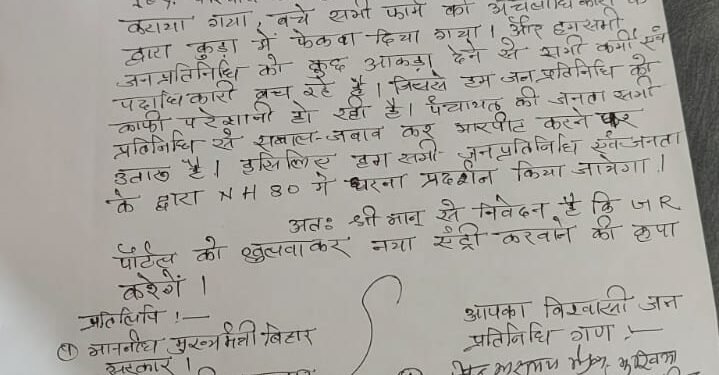 कराया गया, बचे सभी फार्म को अंचलाधिकारी के
द्वारा कुड़ा में फेकवा दिया गया। और हम सभी
जन प्रतिनिधि को कुछ आकड़ा देने से सभी कर्मी एवं
पदाधिकारी बच रहे है। जिससे हम जन प्रतिनिधि को
काफी परेशानी हो रही है। पंचायत की जनता सभी
प्रतिनिधि से सवाल-जवाब कर मारपीट करने पर
उतारू है। इसिलिए हम सभी जनप्रतिनिधि एवं जनता
के द्वारा NH 80 में धरना प्रदर्शन किया जायेगा।
अतः श्री मान् से निवेदन है कि JR
पोर्टल को खुलवाकर नया एंट्री करवाने की कृपा
करेगें।
प्रतिलिपि :— आपका विश्वासी जन
① माननीय मुख्य मंत्री बिहार प्रतिनिधि गण :—
सरकार।